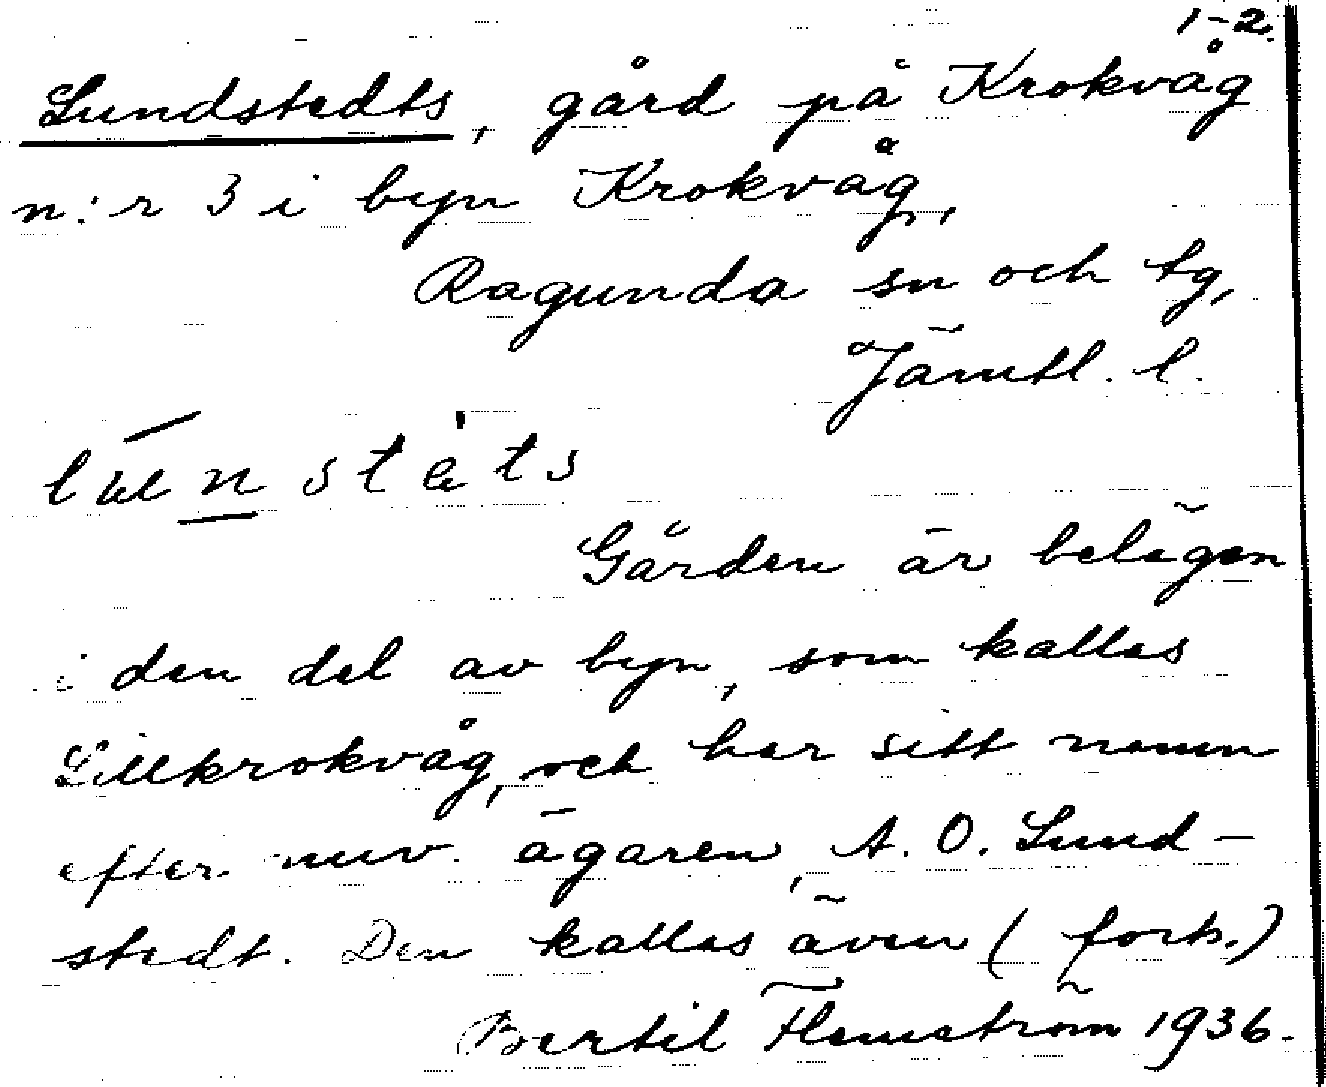 1-2.
Lundstedts, gård på Krokvåg
n:r 3 i byn Krokvåg,
Ragunda sn och tg,
Jämtl. l.
Gården är belägen
i den del av byn, som kallas
Lillkrokvåg, och har sitt namn
efter nuv. ägaren, A. O. Lund-
stedt. Den kallas även (forts.)
Bertil Flemström 1936.